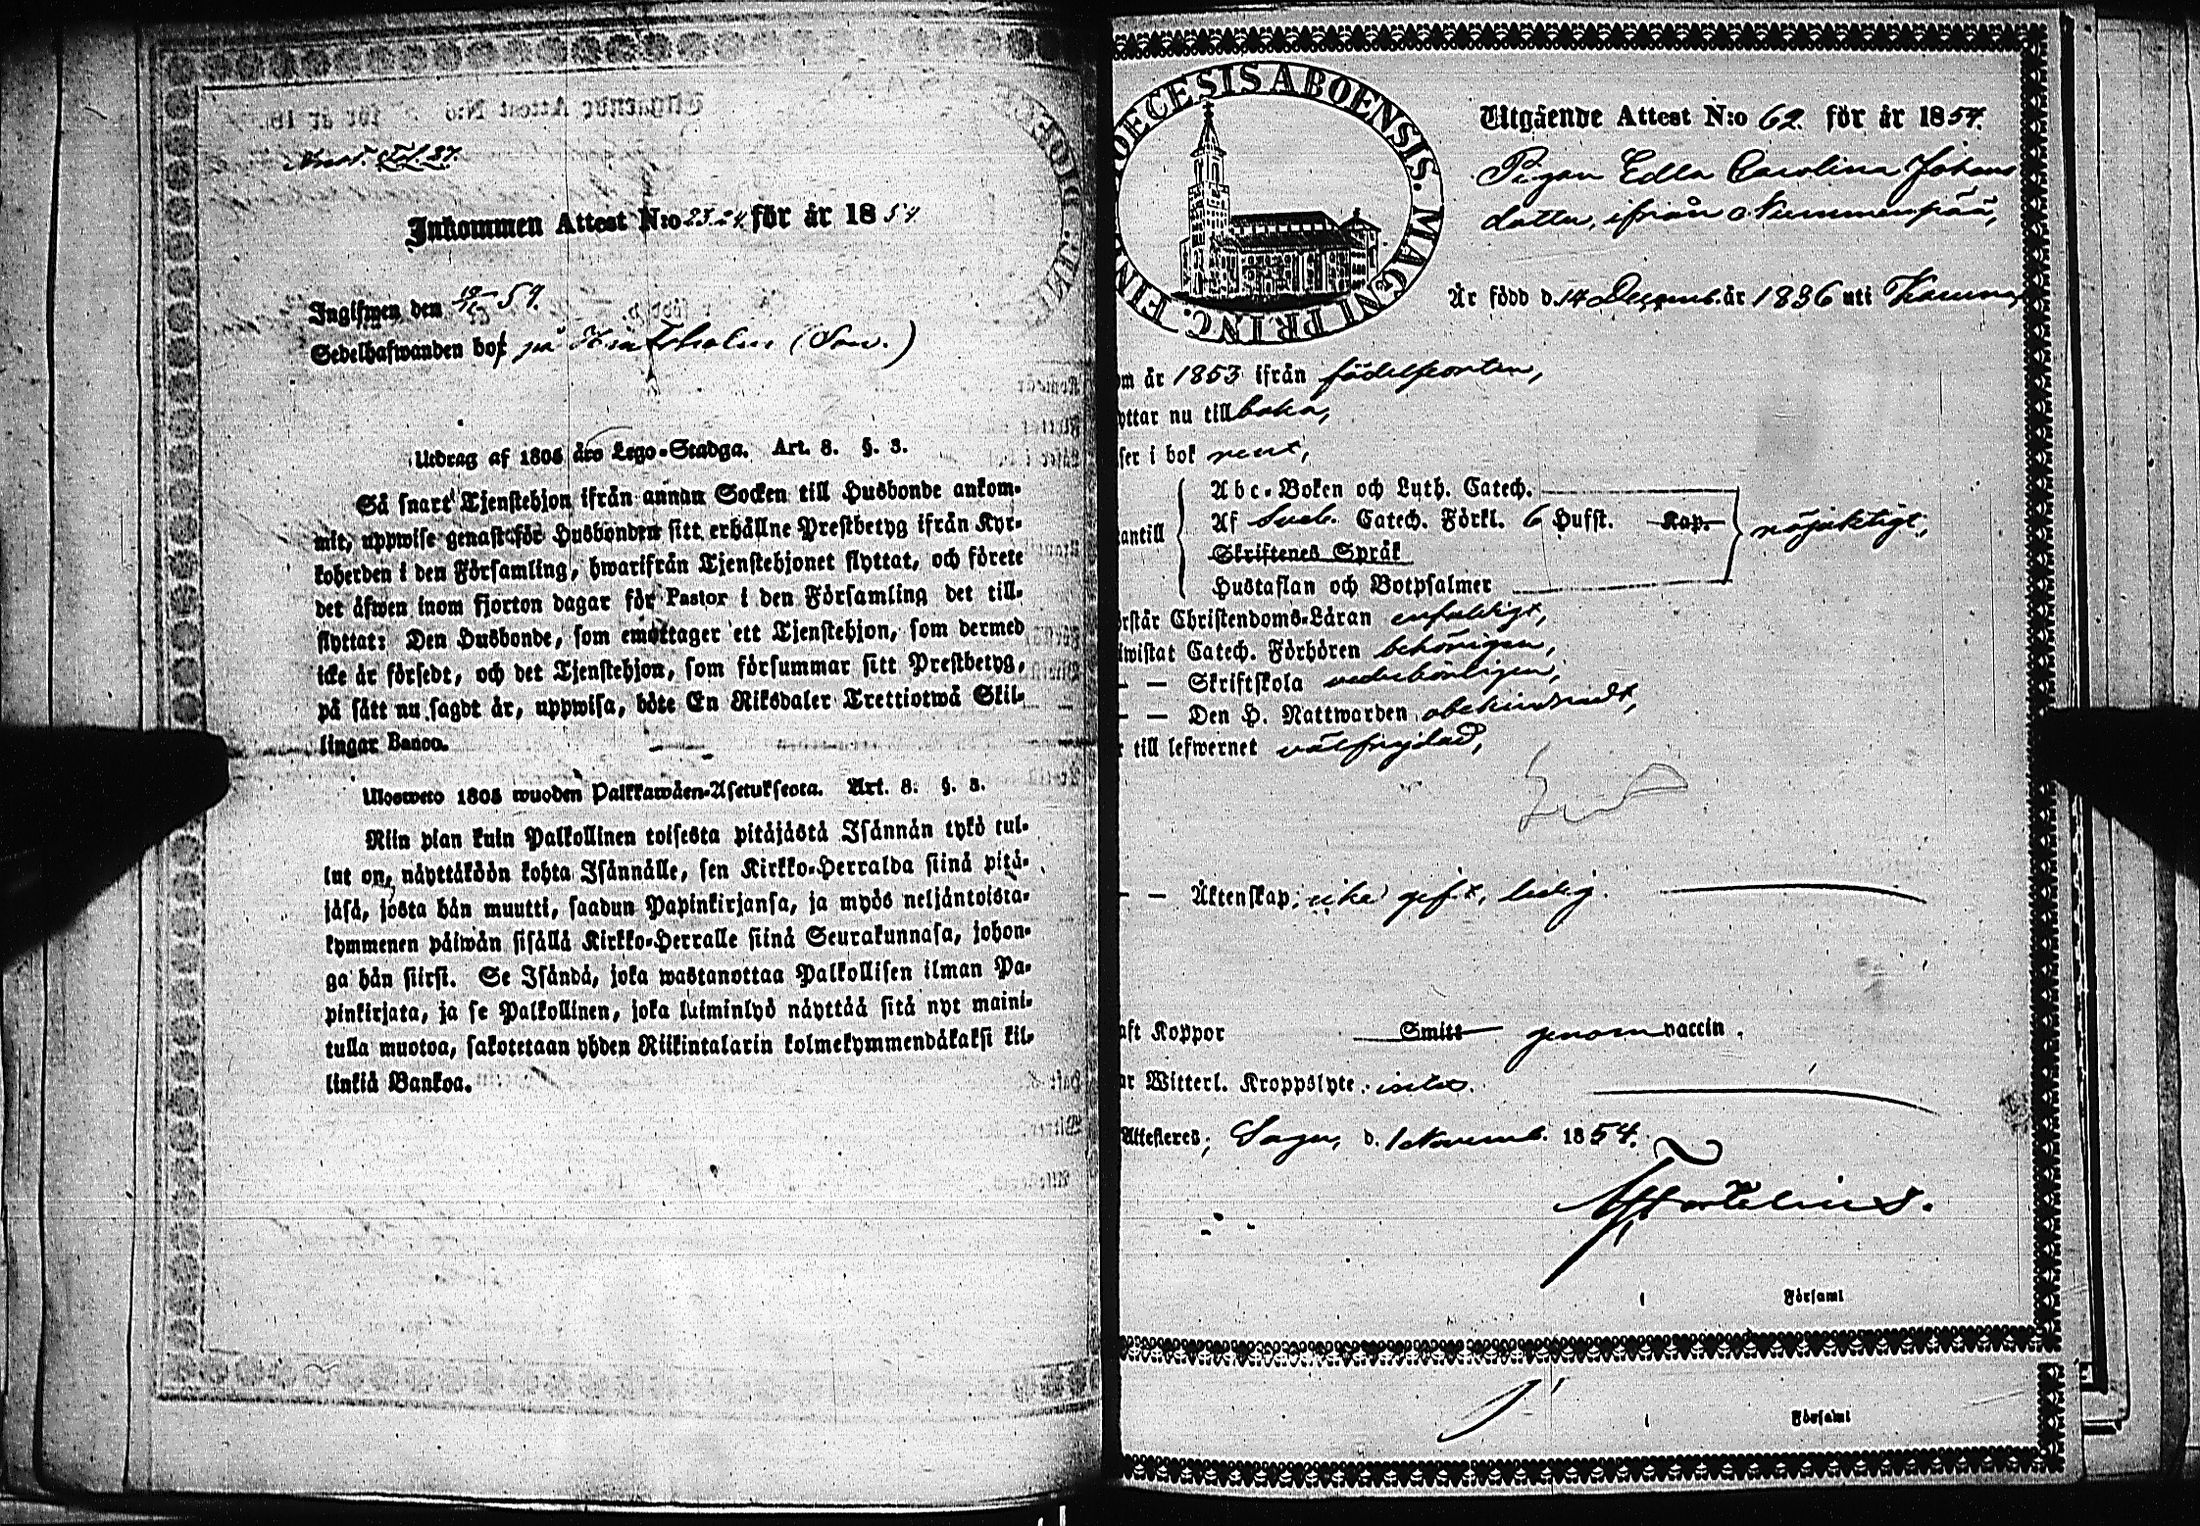 Fol. 87.
Inkommen Attest N:o 23.24. för år 1854
Ingifwen den 54.
Sedelhafwanden bor på (Sow.)
Utdrag af 1805 års Lego-Stadga. Art. 8. §. 3.
Så snart Tjenstehjon ifrån annan Socken till Husbonde ankom-
mit, uppwise genast för Husbonden sitt erhållne Prestbetyg ifrån Kyr-
koherden i den Församling, hwarifrån Tjenstehjonet flyttat, och förete
det äfwen inom fjorton dagar för Pastor i den Församling det till-
flyttat: Den Husbonde, som emottager ett Tjenstehjon, som dermed
icke är försedt, och det Tjenstehjon, som försummar sitt Prestbetyg,
på sätt nu sagdt är, uppwisa, böte En Riksdaler Trettiotwå Skil-
lingar Banco.
Uloswето 1805 wuoden Palkkawäen-Asetuksesta. Art. 8: §. 3.
Niin pian kuin Palkollinen toisesta pitäjästä Isännän tykö tul-
lut on, näyttäköön kohta Isännälle, sen Kirkko-Herralda siinä pitä-
jäsä, josta hän muutti, saadun Papinkirjansa, ja myös neljäntoista-
kymmenen päiwän sisällä Kirkko-Herralle siinä Seurakunnasa, johon-
ga hän siirsi. Se Isändä, joka wastanottaa Palkollisen ilman Pa-
pinkirjata, ja se Palkollinen, joka laiminlyö näyttää sitä nyt maini-
tulla muotoa, sakotetaan yhden Riikintalarin kolmekymmendäkaksi kil-
linkiä Bankoa.
DIOECESIS ABOENSIS. MAGNI PRINC. FIN
Utgående Attest N:o 62. för år 1854.
Pigan Edla Carolina Johans
dotter, ifrån Nummenpää,
Är född d. 14 Decemb. år 1836 uti
om år 1853 ifrån födelseorten,
yttar nu tillbaka,
ser i bok rent,
antill
Abc-Boken och Luth. Catech.
Af Sveb. Catech. Förkl. 6 Hufst. Kap.
Skriftenes Språk
Hustaflan och Botpsalmer
nöjaktigt,
rstår Christendoms-Läran enfaldigt,
iwistat Catech. Förhören behörigen,
— — Skriftskola vederbörligen,
— — Den H. Nattwarden obehindradt,
r till lefwernet välfrejdad,
— — Äktenskap; icke gift, ledig.
aft Koppor Smitt genom vaccin.
ar Witterl. Kroppslyte.
Attesteres, Sagu, d. 1 Novemb. 1854.
i Församl
i Församl